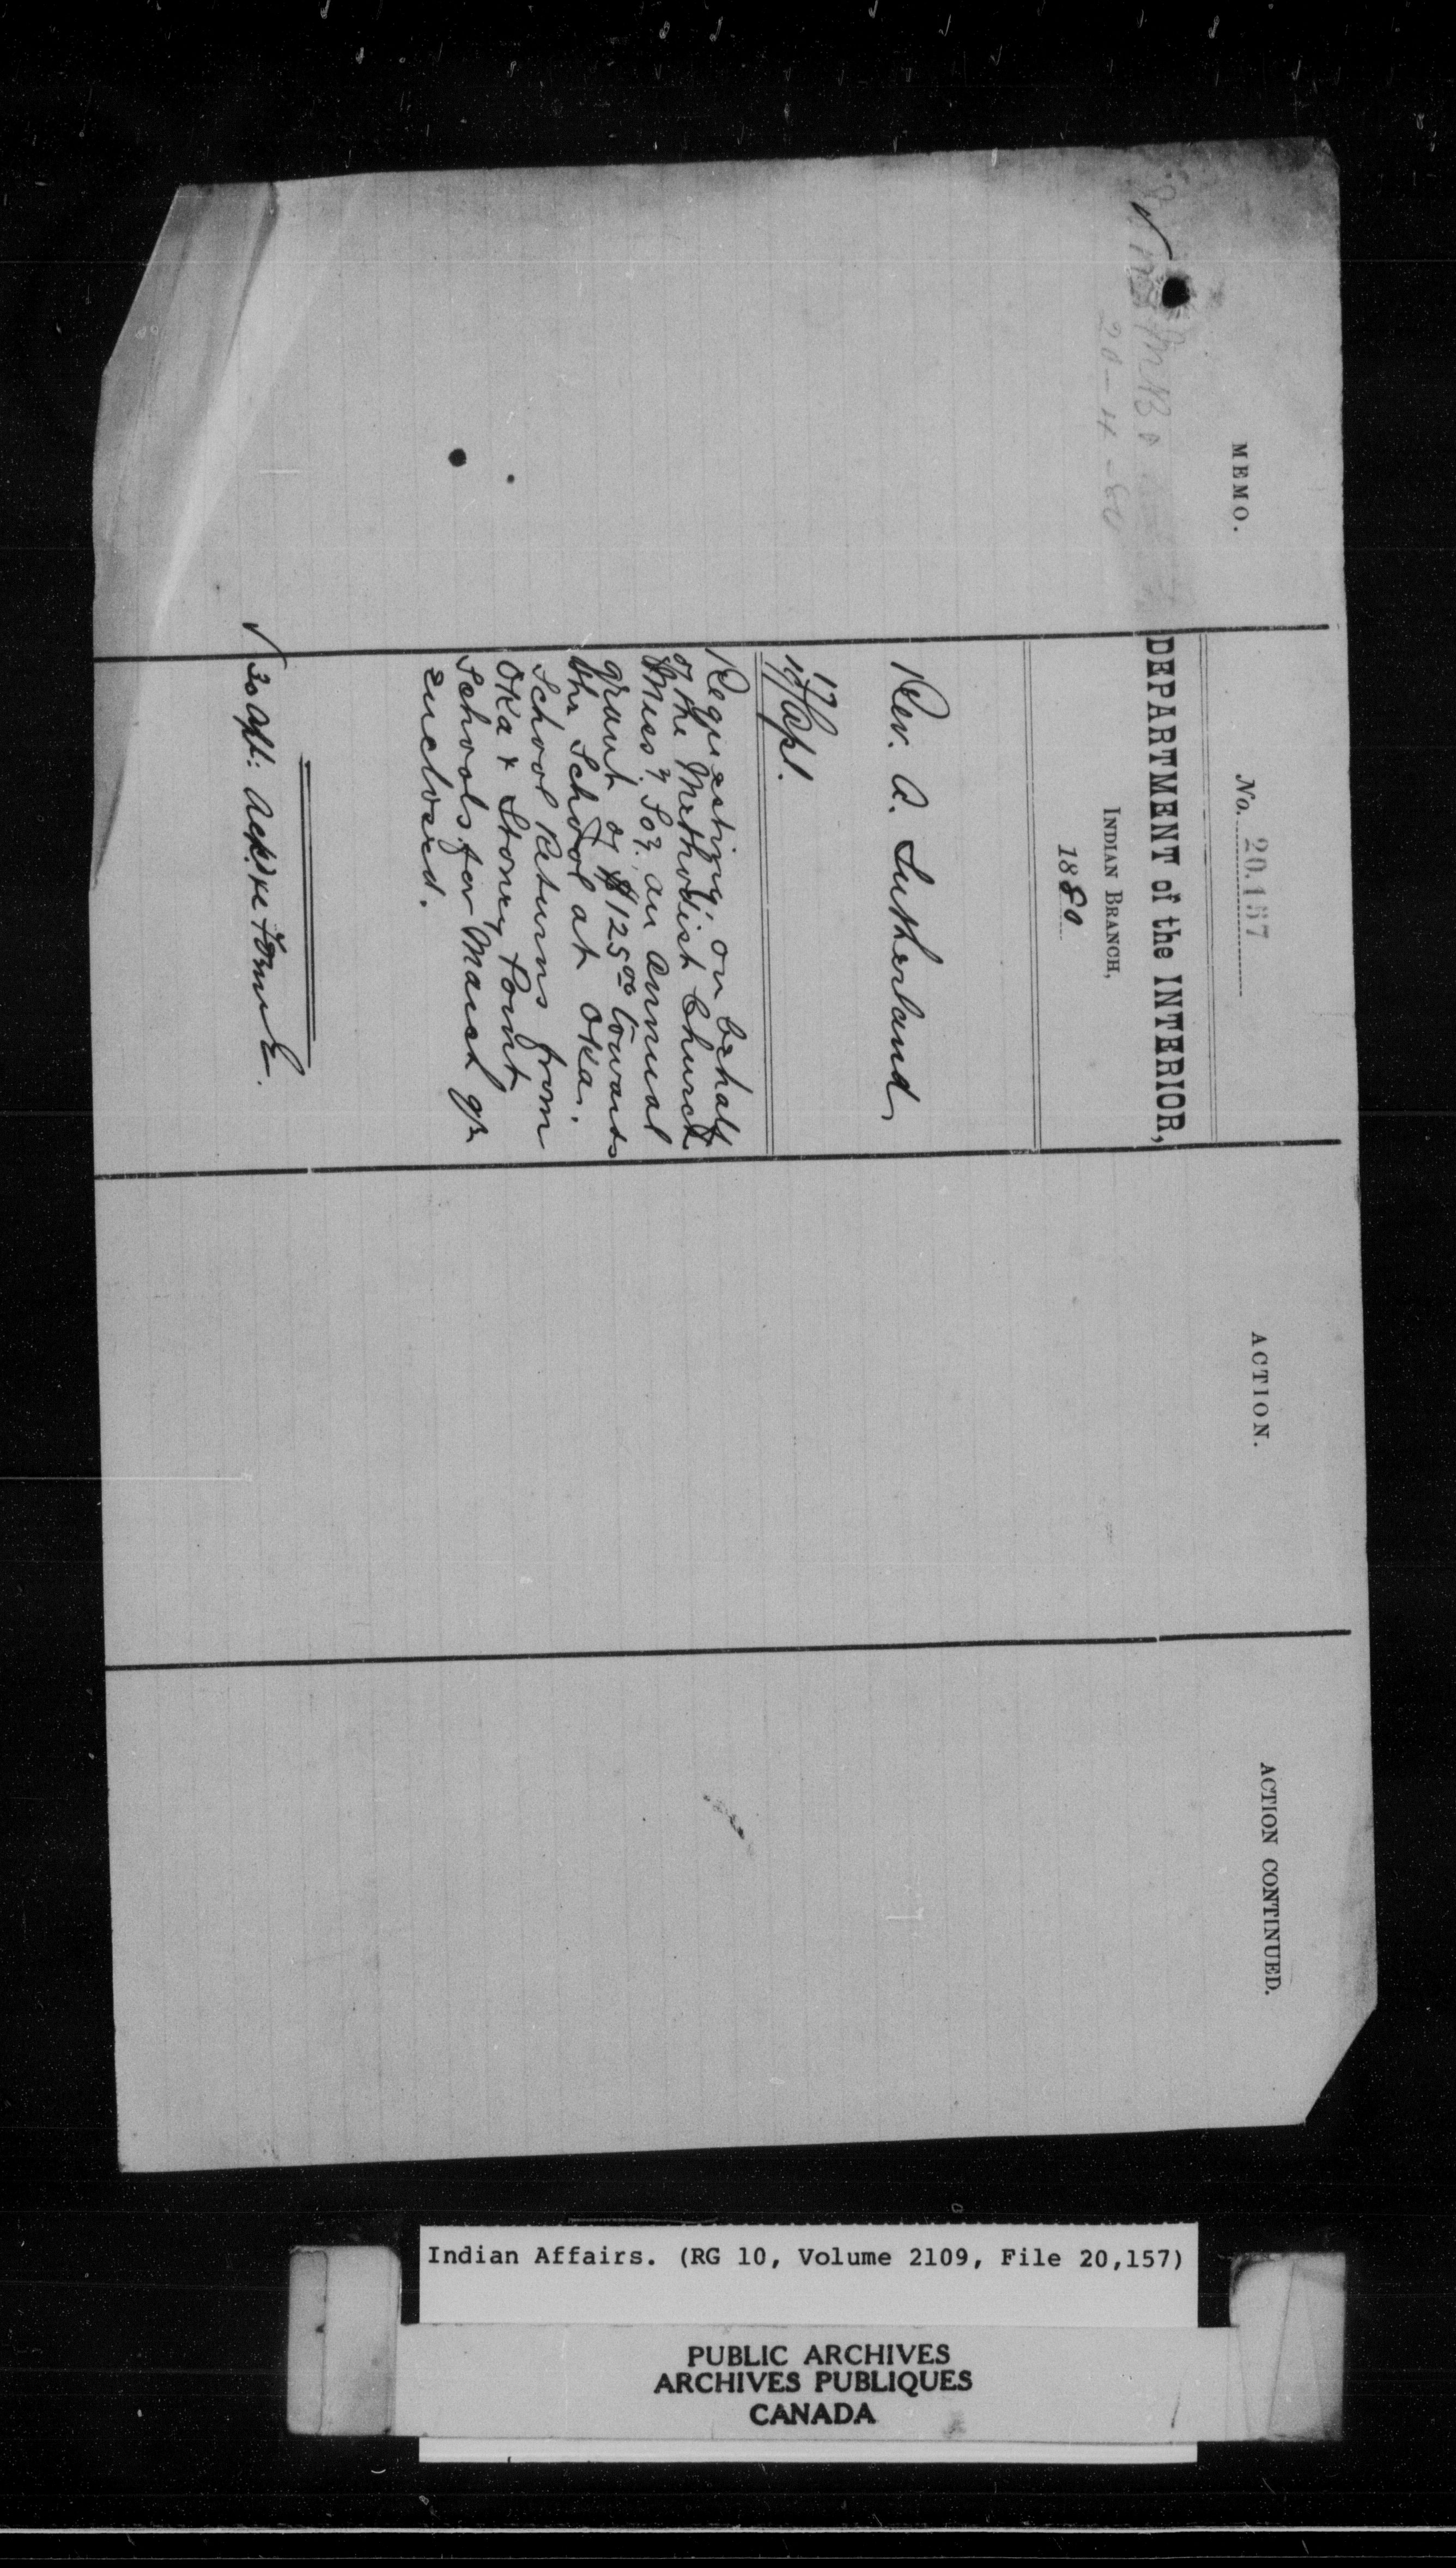 MEMO.
20-4-80
No. 20.157
DEPARTMENT of the INTERIOR,
INDIAN BRANCH,
1880
Rev. A. Sutherland
17 Apl.
Requesting, on behalf
of the Methodist Church
Missy Socy. an annual
grant of $125 00 towards
the School at Oka.
School Returns from
Oka & Stoney Point
Schools for March qr
enclosed.
30 Apl:
ACTION.
ACTION CONTINUED.
Indian Affairs. (RG 10, Volume 2109, File 20,157)
PUBLIC ARCHIVES
ARCHIVES PUBLIQUES
CANADA